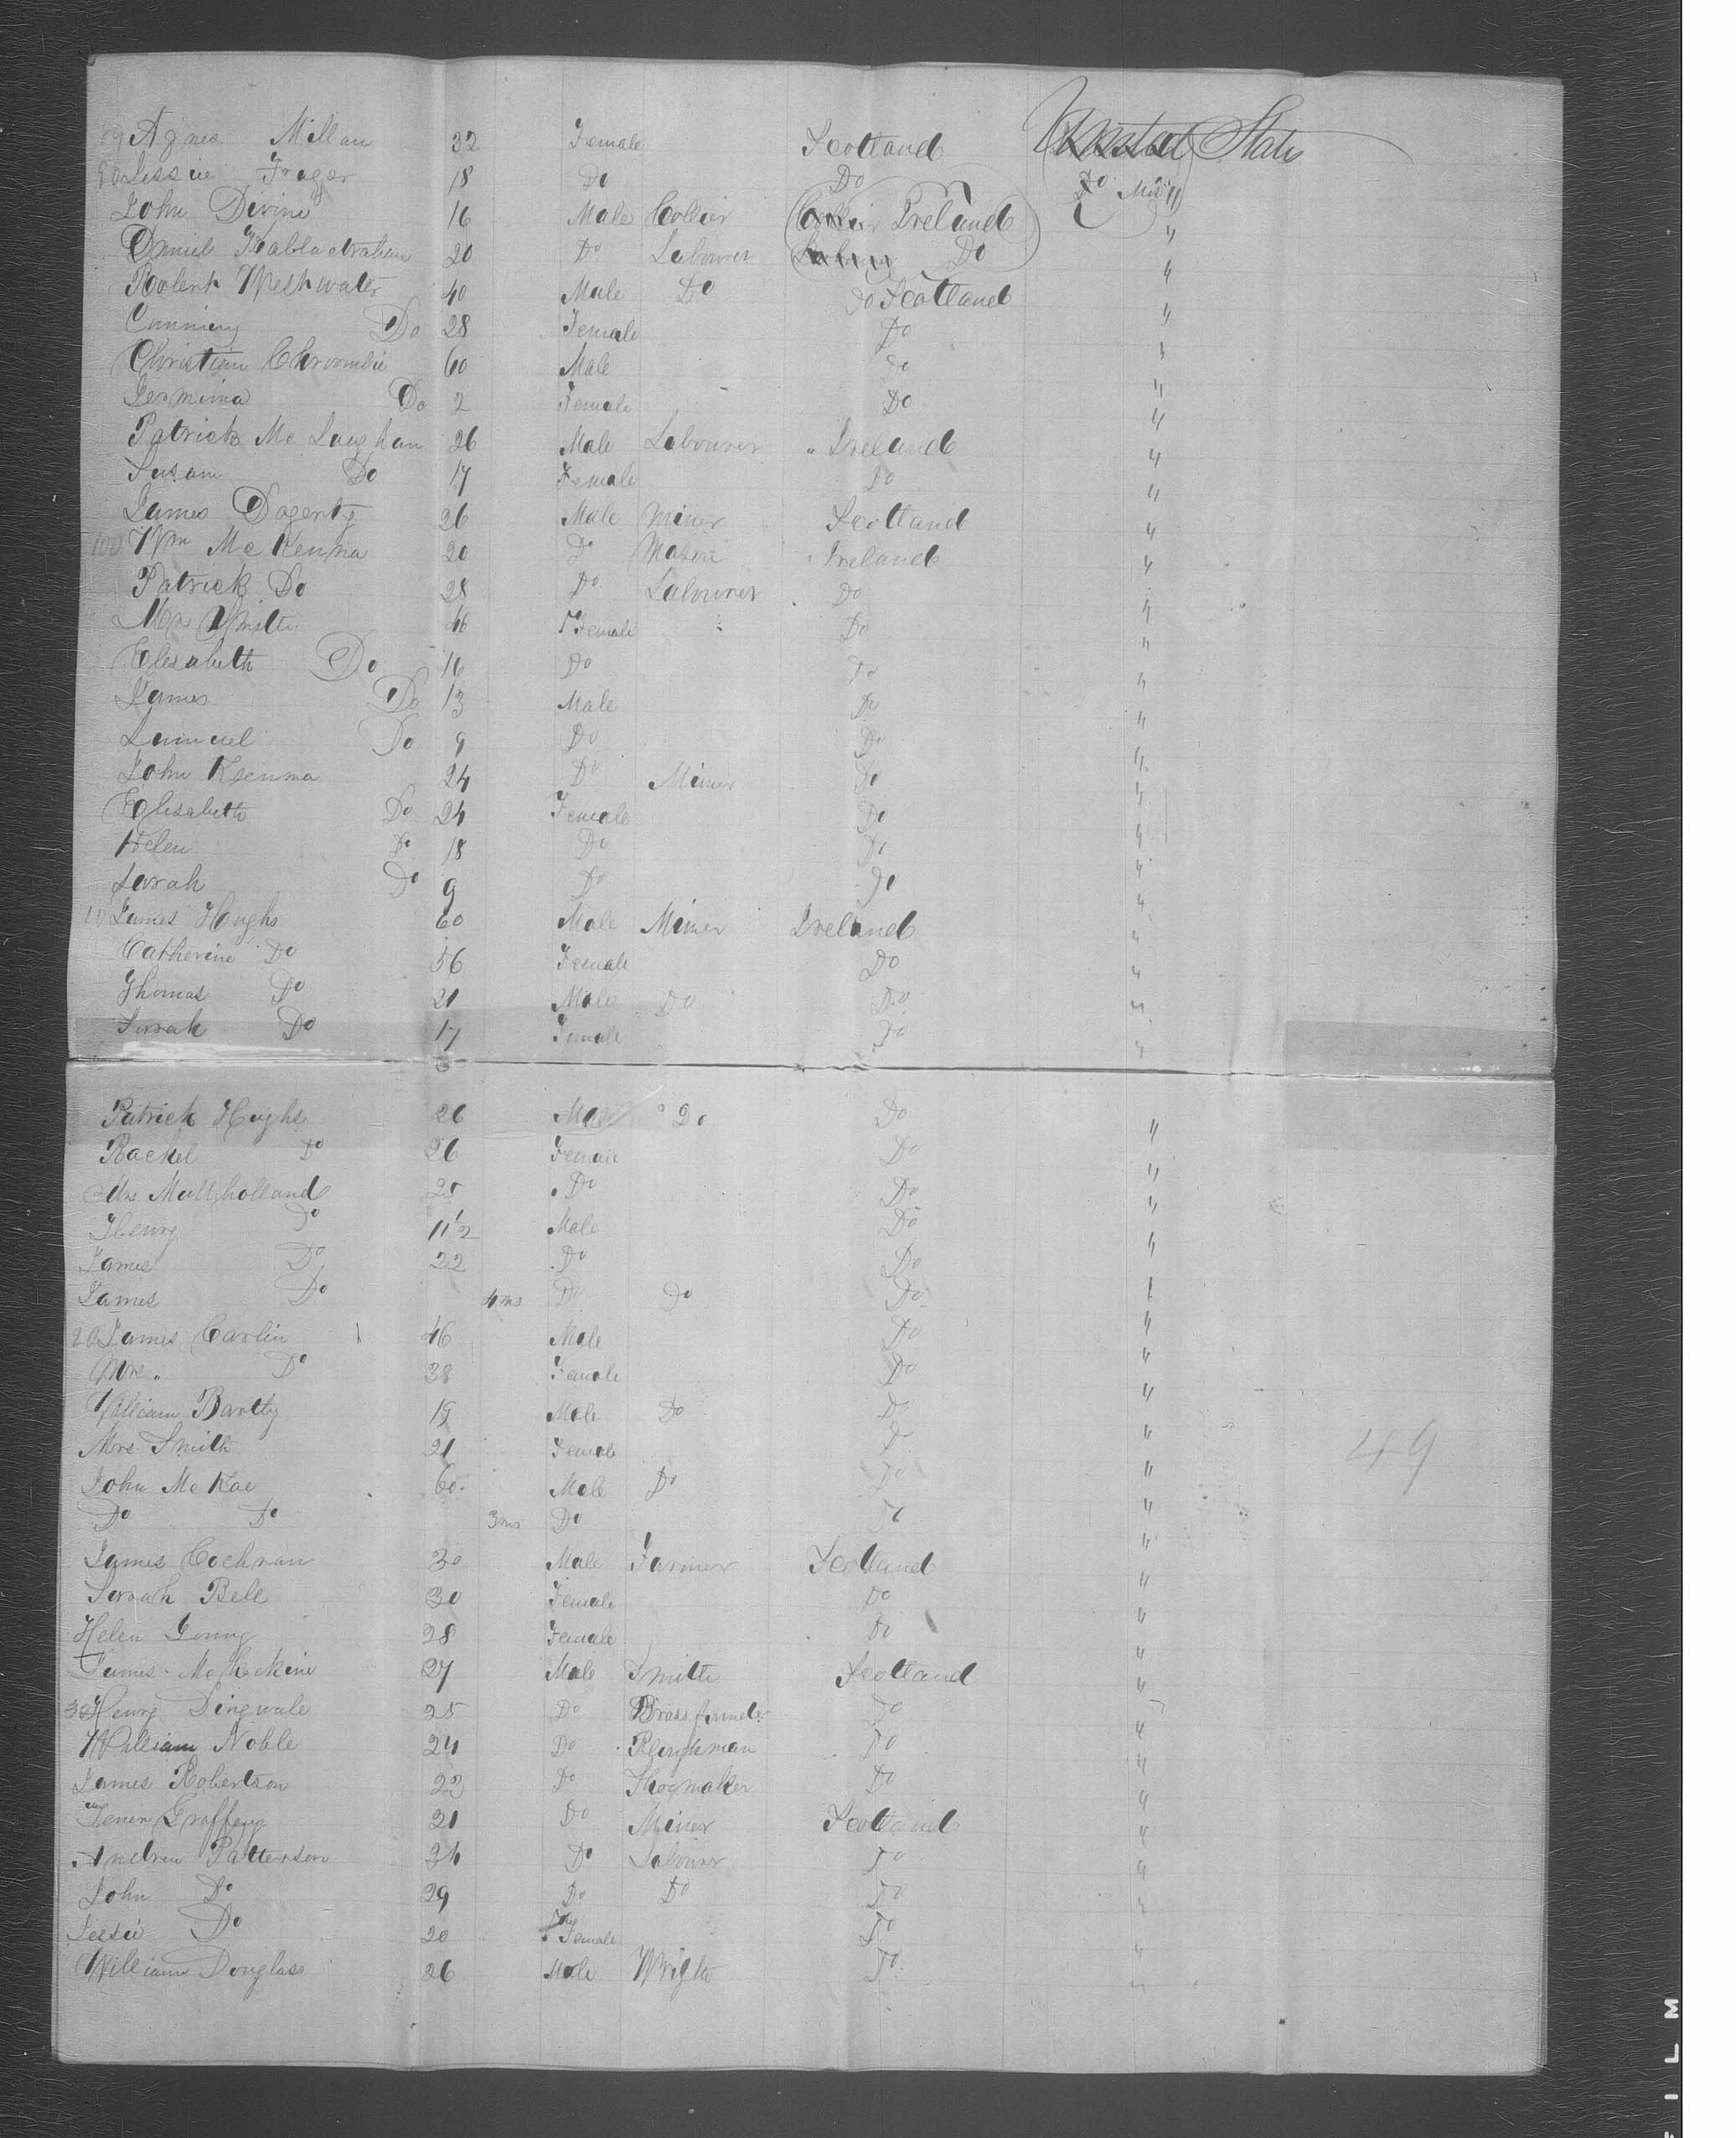 89 Agnes Millan 32 Female Scotland United States
90 Jessie Frager 18 Do Do Do
John Divine 16 Male Collier Collier Ireland "
Daniel 20 Do Labourer Do "
Robert Westwater 40 Male Do Do Scotland "
Do 28 Female Do "
Christian Chroombie 60 Male Do "
Jermima Do 2 Female Do "
Patrick Mc Laughan 26 Male Labourer " Ireland "
Susan Do 17 Female Do "
James Dogerty 26 Male Miner Scotland "
100 Wm Mc Kenna 20 Do Mason Ireland "
Patrick Do 28 Do Labourer Do "
Smith 46 Female Do "
Elesabeth Do 16 Do Do "
James Do 13 Male Do "
Samuel Do 9 Do Do "
John Kenma 24 Do Miner Do "
Elisabeth Do 24 Female Do "
Helen Do 18 Do Do "
Sarah Do 9 Do Do "
10 James Hughs 60 Male Miner Ireland "
Catherine Do 56 Female Do "
Thomas Do 21 Male Do Do "
Sarah Do 17 Female Do "
Patrick Hughs 26 Male Do Do "
Rachel Do 26 Female Do "
Mrs Mullholland 25 Do Do "
Henry Do 11½ Male Do "
James Do 22 Do Do "
James Do 4 ms Do Do Do "
20 James Carlin 46 Male Do "
Mrs. Do 38 Female Do "
William Bartly 19 Male Do Do "
Mrs Smith 21 Female Do "
John Mc Kae 60 Male Do Do "
Do Do 3 ms Do Do "
James Cochran 30 Male Farmer Scotland "
Sarah Bell 30 Female Do "
Helen Young 28 Female Do "
James 27 Male Smith Scotland "
30 Henry Dingwale 25 Do Brass founder Do "
William Noble 24 Do Plughman Do "
James Robertson 22 Do Shoemaker Do "
21 Do Miner Scotland "
Andrew Patterson 34 Do Labourer Do "
John Do 29 Do Do Do "
Jessie Do 20 Female Do "
William Douglass 26 Male Wright Do "
49
FILM